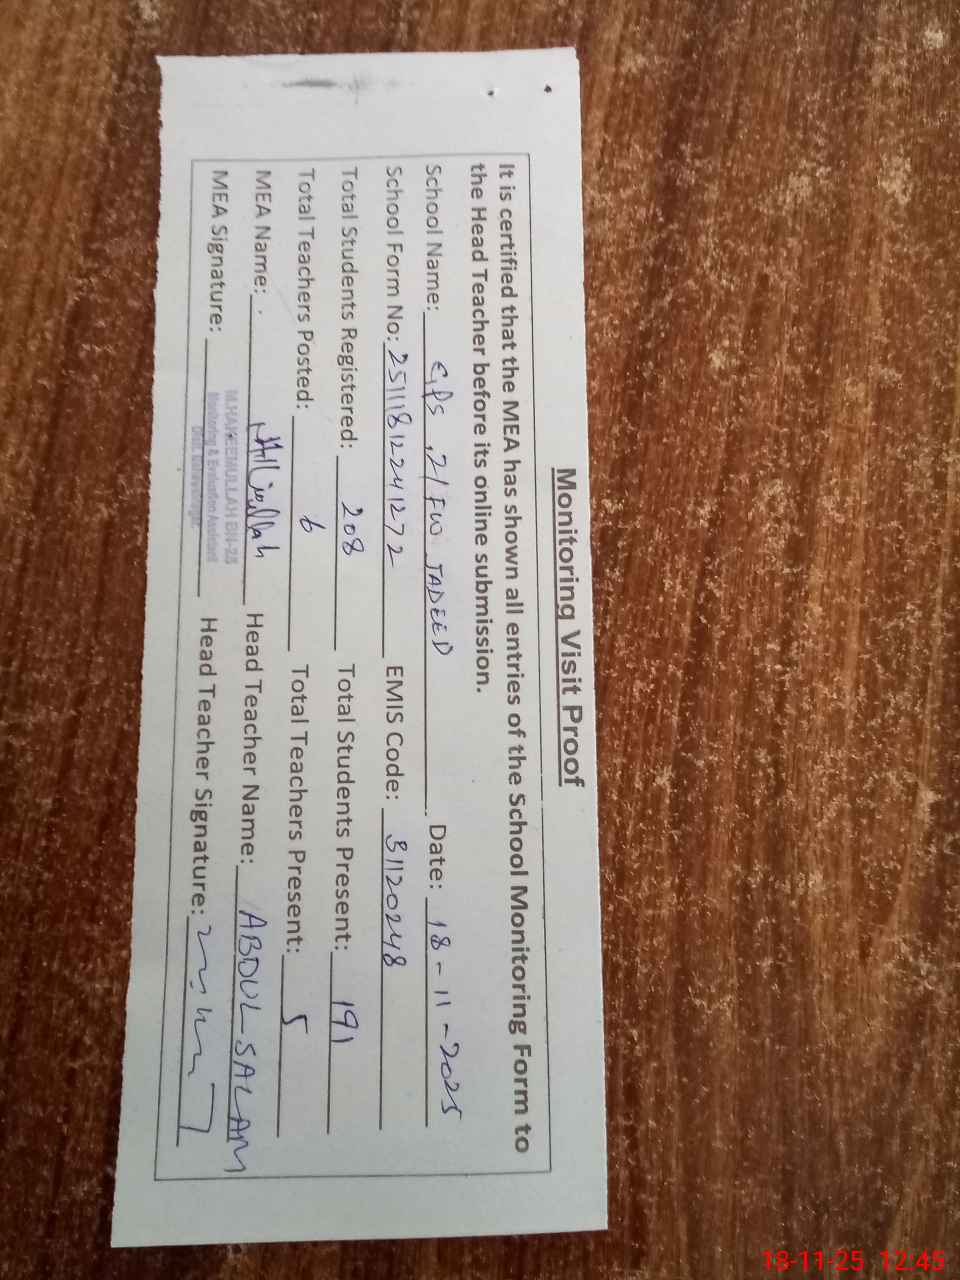 Monitoring Visit Proof
It is certified that the MEA has shown all entries of the School Monitoring Form to
the Head Teacher before its online submission.
School Name: GPS, 21/FW JADEED Date: 18-11-2025
School Form No: 251118122241272 EMIS Code: 31120248
Total Students Registered: 208 Total Students Present: 191
Total Teachers Posted: 6 Total Teachers Present: 5
MEA Name: Head Teacher Name: ABDUL SALAM
MEA Signature: Head Teacher Signature:
M.HAKEEMULLAH BN-28
Monitoring & Evaluation Assistant
18-11-25 12:45